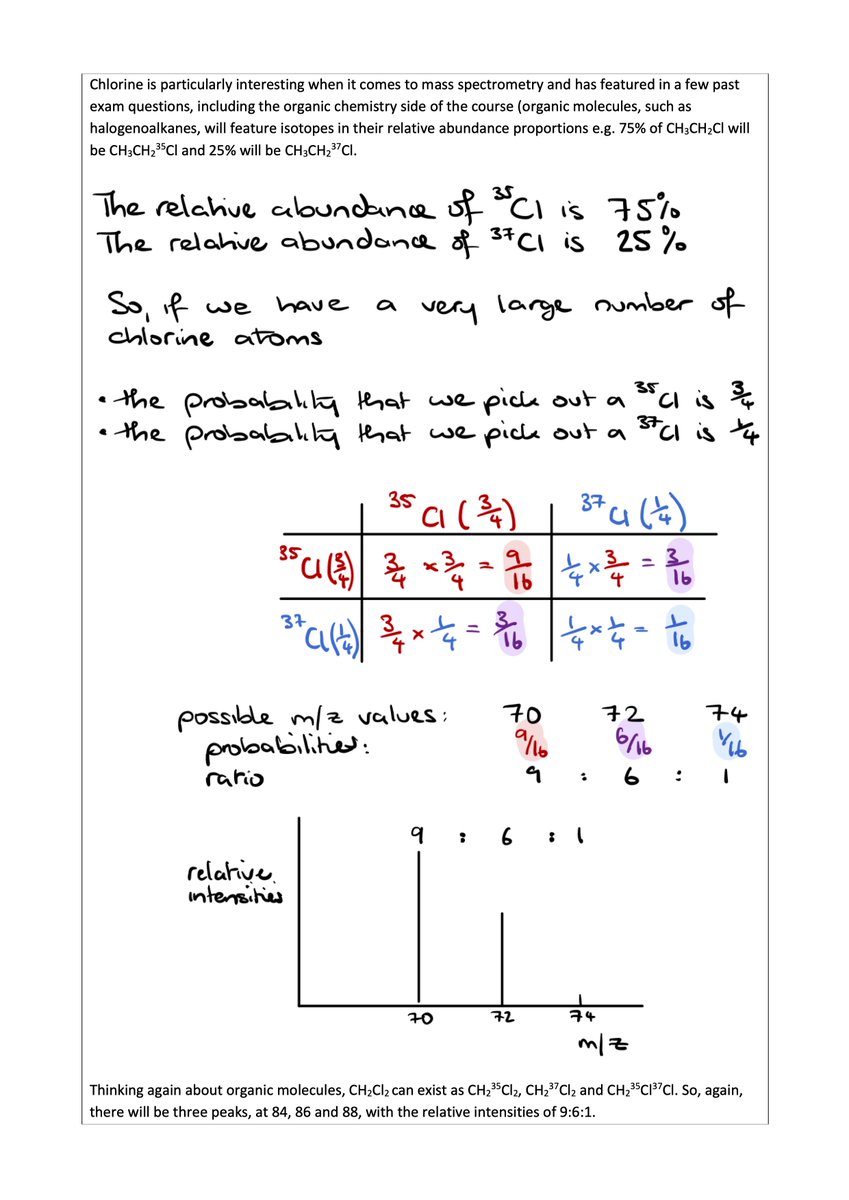 Chlorine is particularly interesting when it comes to mass spectrometry and has featured in a few past
exam questions, including the organic chemistry side of the course (organic molecules, such as
halogenoalkanes, will feature isotopes in their relative abundance proportions e.g. 75% of CH₃CH₂Cl will
be CH₃CH₂³⁵Cl and 25% will be CH₃CH₂³⁷Cl.
The relative abundance of ³⁵Cl is 75%
The relative abundance of ³⁷Cl is 25%
So, if we have a very large number of
chlorine atoms
• the probability that we pick out a ³⁵Cl is 3/4
• the probability that we pick out a ³⁷Cl is 1/4
³⁵Cl (3/4) ³⁷Cl (1/4)
³⁵Cl (3/4) 3/4 × 3/4 = 9/16 1/4 × 3/4 = 3/16
³⁷Cl (1/4) 3/4 × 1/4 = 3/16 1/4 × 1/4 = 1/16
possible m/z values: 70 72 74
probabilities: 9/16 6/16 1/16
ratio 9 : 6 : 1
9 : 6 : 1
relative
intensities
70 72 74
m/z
Thinking again about organic molecules, CH₂Cl₂ can exist as CH₂³⁵Cl₂, CH₂³⁷Cl₂ and CH₂³⁵Cl³⁷Cl. So, again,
there will be three peaks, at 84, 86 and 88, with the relative intensities of 9:6:1.